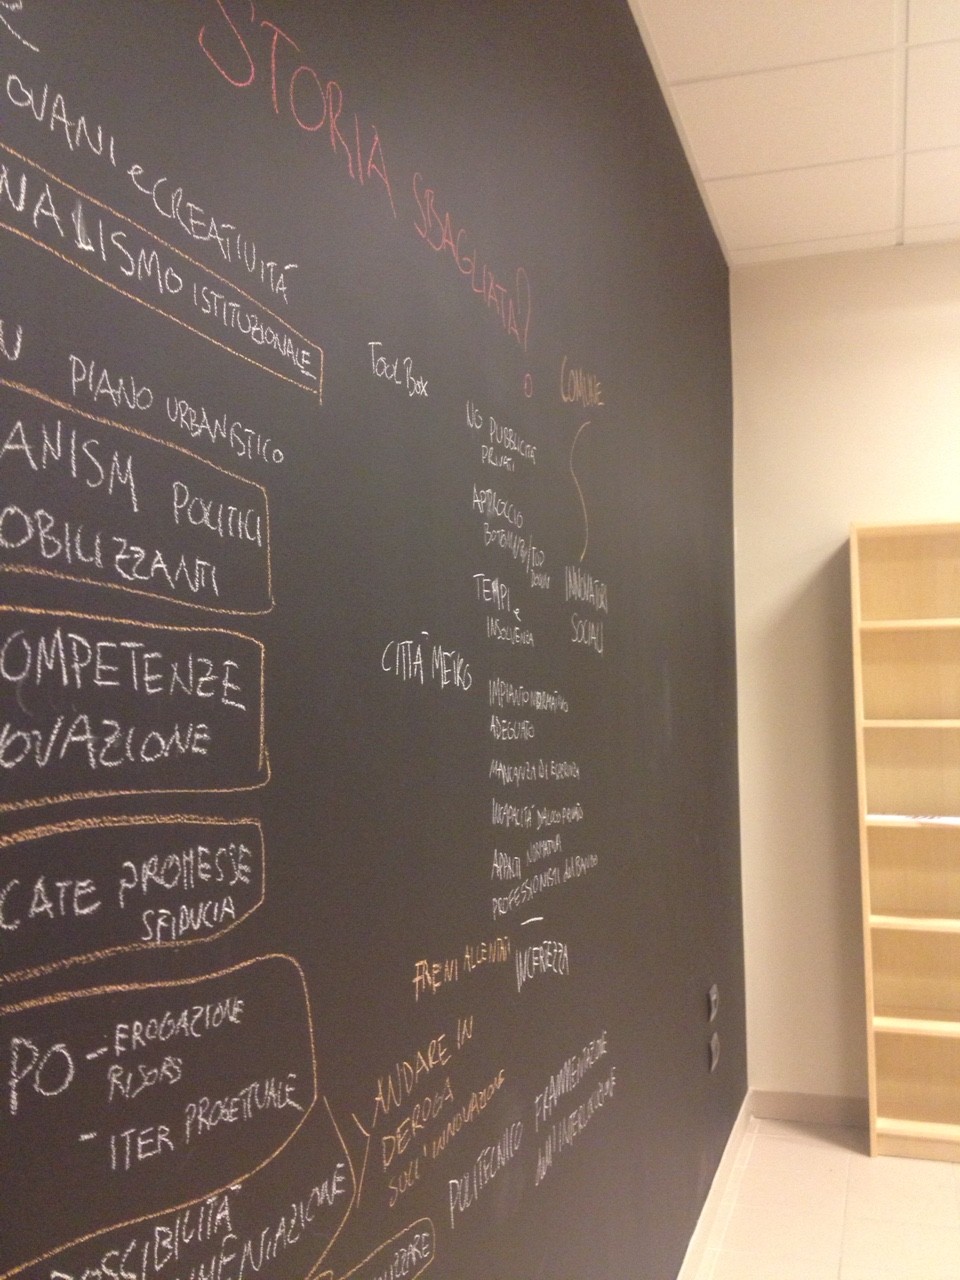 STORIA SBAGLIATA?
OVANI e CREATIVITÁ
NALISMO ISTITUZIONALE
U PIANO URBANISTICO
ANISM POLITICI
OBILIZZANTI
OMPETENZE
OVAZIONE
CATE PROMESSE
SFIDUCIA
PO - EROGAZIONE
RISORS
- ITER PROGETTUALE
SCIBILITÀ
MENTAZIONE
TOOL BOX
CITTÀ METRO
NO PUBBLICITÀ
PRIVATI
APPROCCIO
BOTTOM UP / TOP
DOWN
TEMPI e
INSOLVENZA
IMPIANTO NORMATIVO
ADEGUATO
MANCANZA DI
INCAPACITÀ DIALOGO PRIVATO
APPALTI NORMATIVA
PROFESSIONISTI del BANDO
INCERTEZZA
FRENI ALLENTATI
ANDARE IN
DEROGA
SULL'INNOVAZIONE
POLITECNICO
FRAMMENTAZIONE
INTERLOCUZIONE
COMUNE
INNOVATORI
SOCIALI